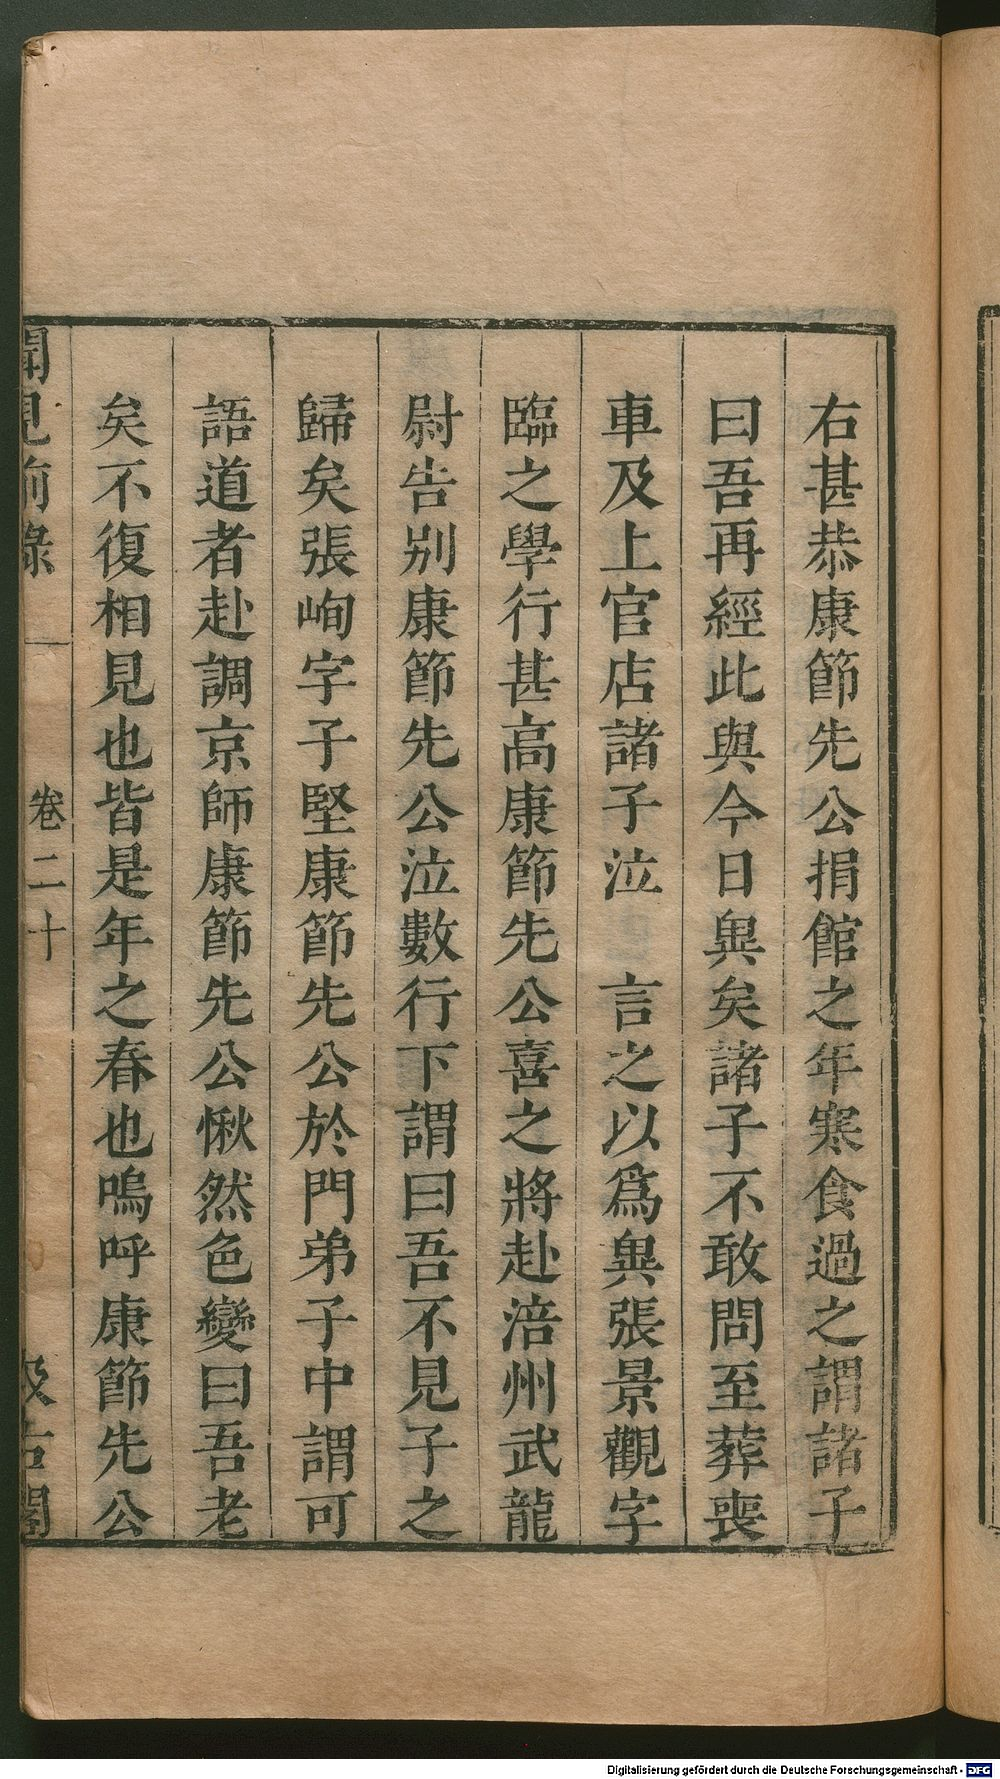 右甚恭康節先公捐館之年寒食過之謂諸子
曰吾再經此與今日異矣諸子不敢問至葬喪
車及上官店諸子泣　言之以爲異張景觀字
臨之學行甚高康節先公喜之將赴涪州武龍
尉告別康節先公泣數行下謂曰吾不見子之
歸矣張峋字子堅康節先公於門弟子中謂可
語道者赴調京師康節先公愀然色變曰吾老
矣不復相見也皆是年之春也嗚呼康節先公
聞見前錄　卷二十　汲古閣
Digitalisierung gefördert durch die Deutsche Forschungsgemeinschaft - DFG